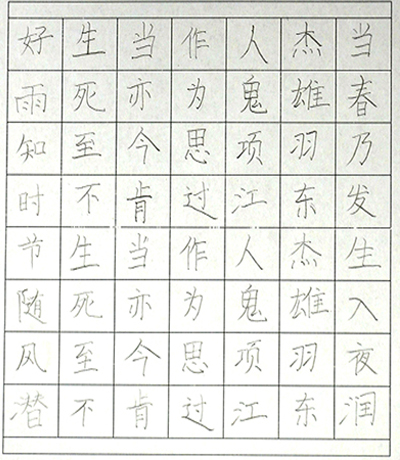 好生当作人杰当
雨死亦为鬼雄春
知至今思项羽乃
时不肯过江东发
节生当作人杰生
随死亦为鬼雄入
风至今思项羽夜
潜不肯过江东润